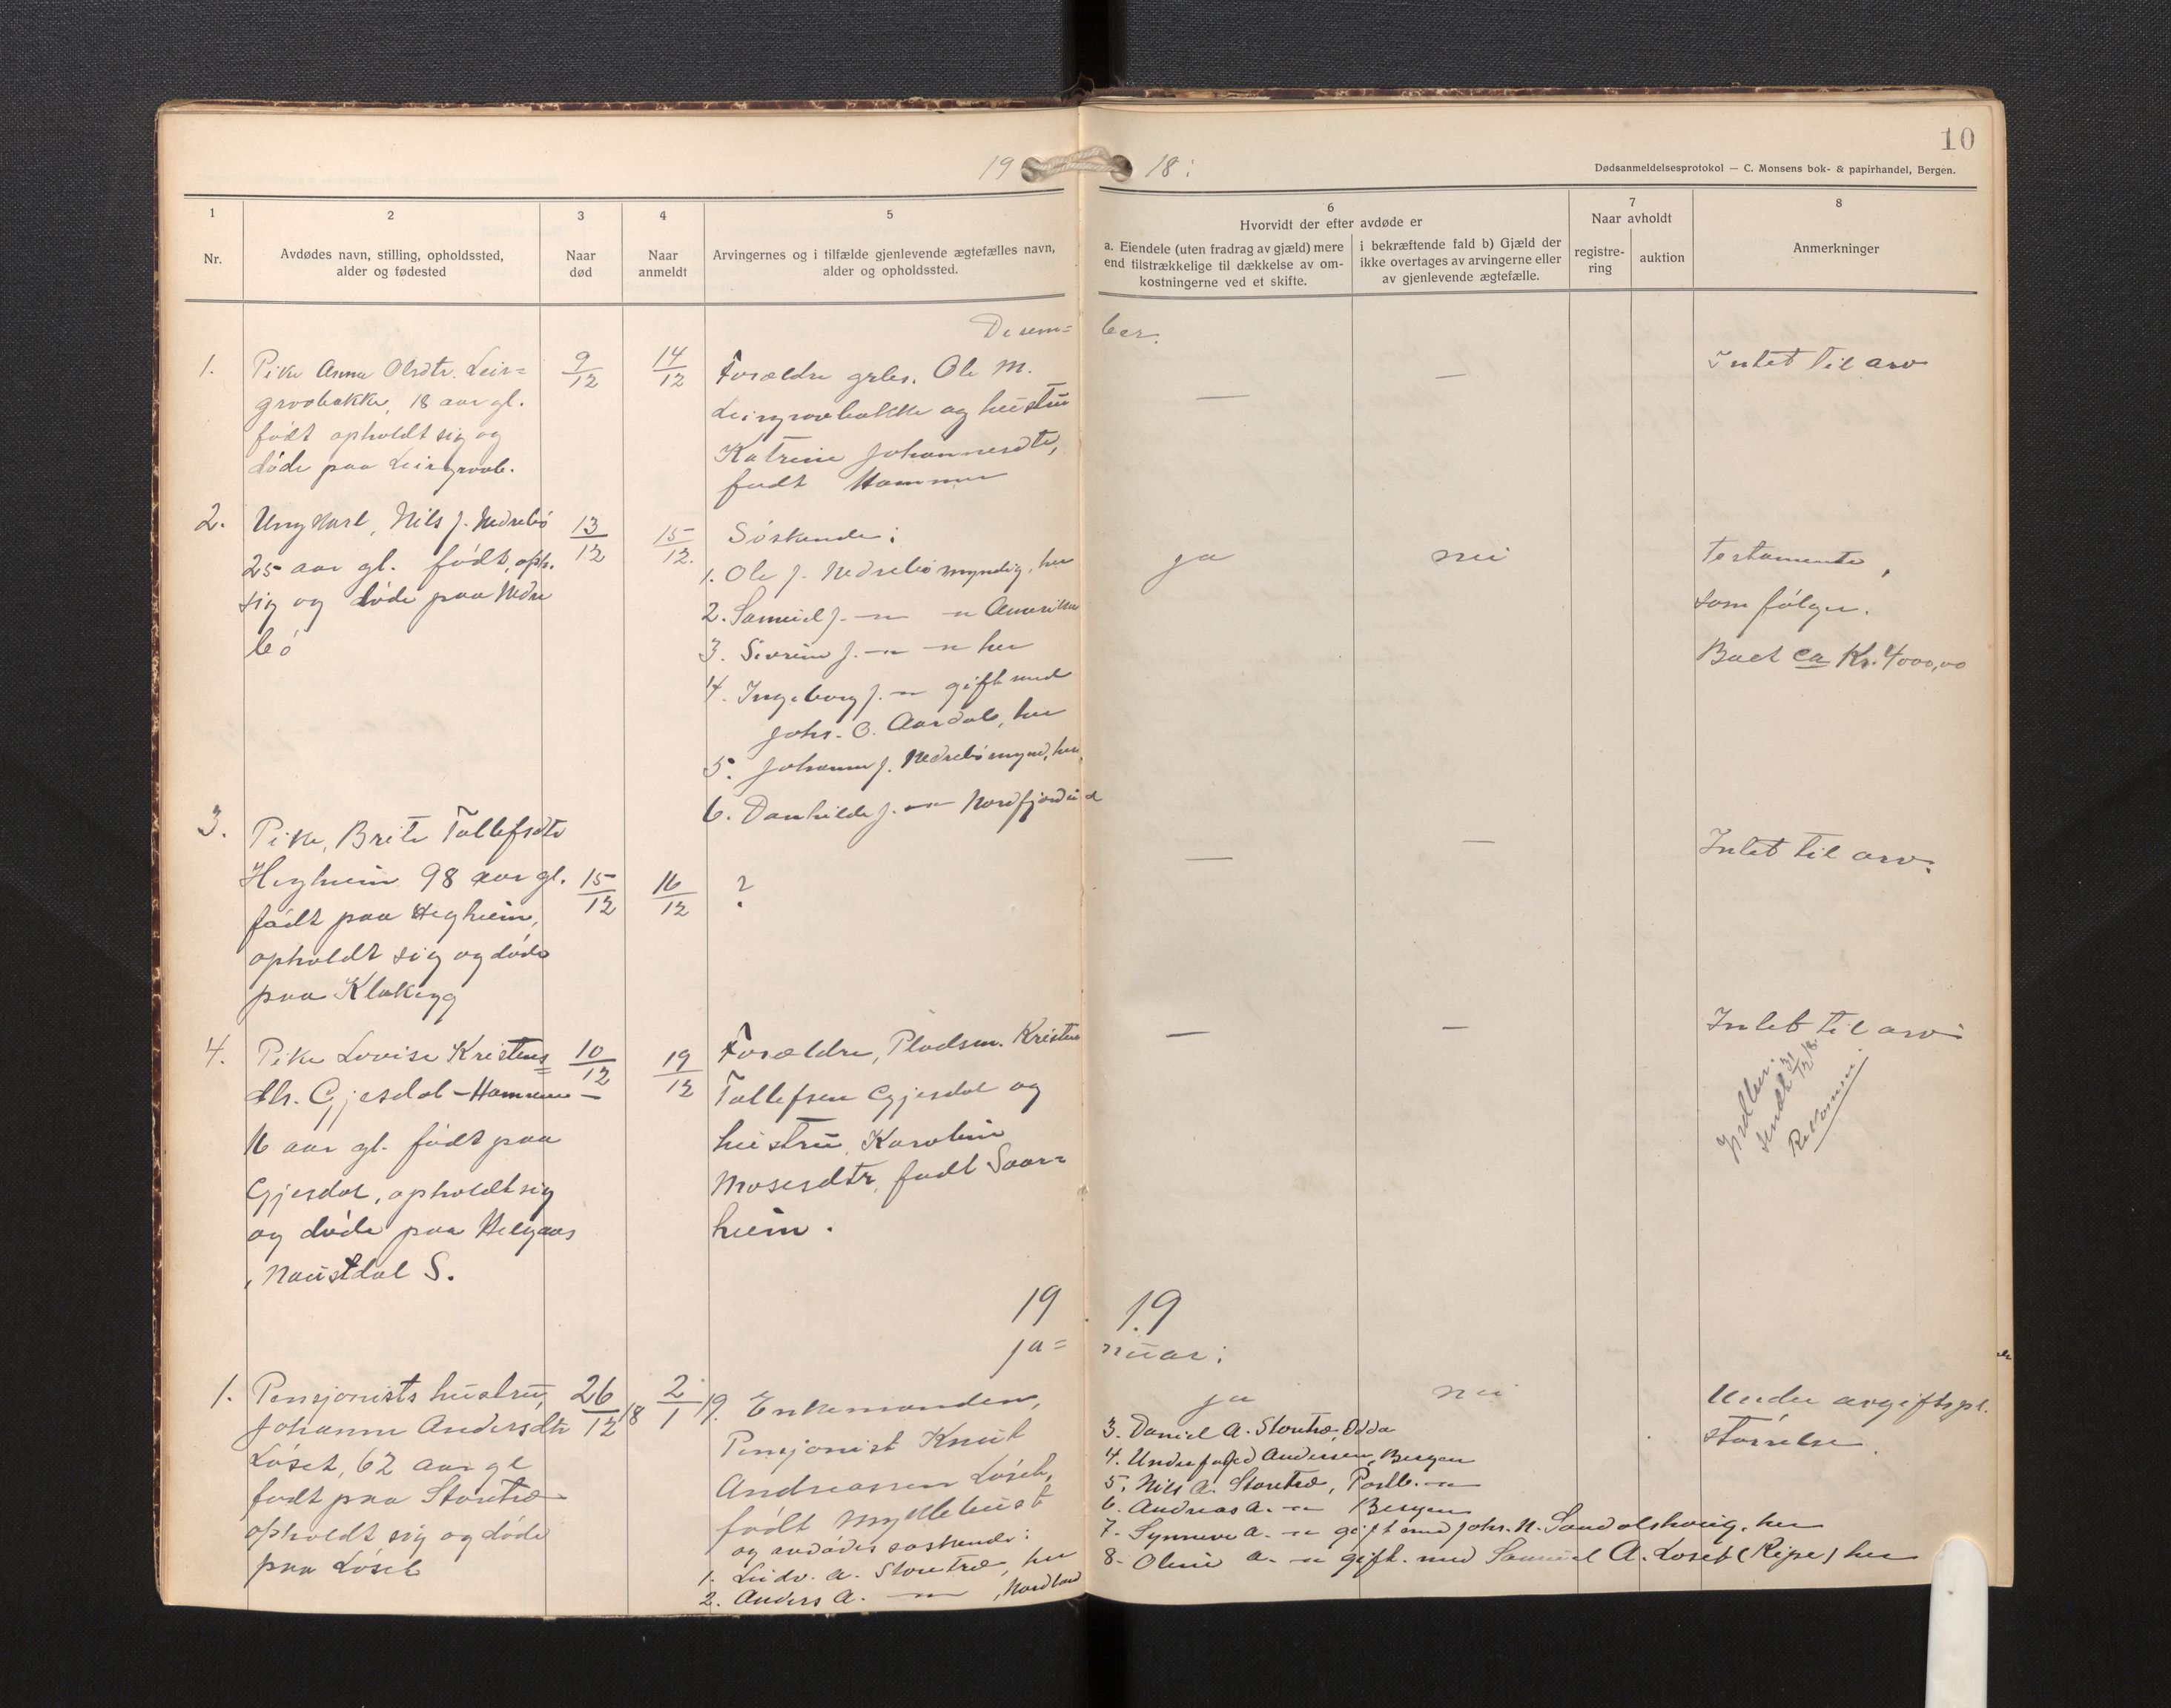 10
19 18:
Dødsanmeldelsesprotokol — C. Monsens bok- & papirhandel, Bergen.
1
Nr.
2
Avdødes navn, stilling, opholdssted,
alder og fødested
3
Naar
død
4
Naar
anmeldt
5
Arvingernes og i tilfælde gjenlevende ægtefælles navn,
alder og opholdssted.
6
Hvorvidt der efter avdøde er
a. Eiendele (uten fradrag av gjæld) mere
end tilstrækkelige til dækkelse av om-
kostningerne ved et skifte.
i bekræftende fald b) Gjæld der
ikke overtages av arvingerne eller
av gjenlevende ægtefælle.
7
Naar avholdt
registre-
ring
auktion
8
Anmerkninger
Desem= ber.
1.
Pike Anna Olsdtr. Leir=
grovbakke, 18 aar gl.
født opholdt sig og
døde paa Leirgrovb.
9/12
14/12
Forældre grbr. Ole M.
Leirgrovbakke og hustru
Katrine Johannesdtr,
født Hammer
—
—
Intet til arv
2.
Ungkarl, Nils J. Nedrebö
25 aar gl. født, oph.
sig og døde paa Nedre
bö
13/12
15/12.
Söskende:
1. Ole J. Nedrebö myndig, her
2. Samuel J. —"— —"— Amerika
3. Sivrine J. —"— —"— her
4. Ingeborg J. —"— gift med
Johs. O. Aardal, her
5. Johanne J. Nedrebö mynd, her,
6. Danhilde J. —"— Nordfjordeid
ja
nei
Testamente,
som følger.
Boet ca Kr. 4000,00
3.
Pike, Brite Tollefsdtr
Hegheim 98 aar gl.
født paa Hegheim,
opholdt sig og døde
paa Klakegg
15/12
16/12
?
—
—
Intet til arv.
4.
Pike Lovise Kristens=
dtr. Gjesdal-Hammer—
16 aar gl. født paa
Gjesdal, opholdt sig
og døde paa Helgaas
, Naustdal S.
10/12
19/12
Forældre, Pladsm. Kristen
Tollefsen Gjesdal og
hustru Karoline
Mosesdtr, født Saar=
heim.
—
—
Intet til arv
sendt 31/12 18.
19 19
Ja= nuar:
1.
Pensjonists hustru,
Johanne Andersdtr
Løset, 62 aar gl
født paa Stortræ
opholdt sig og døde
paa Løset
26/12 18
2/1 19.
Enkemanden,
Pensjonist Knut
Andreassen Løset,
født Myklebust
og avdødes søskende:
1. Ludv. A. Stortræ, her
2. Anders A. —"— , Nordland
ja
nei
3. Daniel A. Stortræ, Odda
4. Underfoged Andersen, Bergen
5. Nils A. Stortræ, Postb. —"—
6. Andreas A. —"— Bergen
7. Synneve A. —"— gift med Johs. N. Sandalshoug, her
8. Oline A. —"— gift. med Samuel A. Løset (Ripe) her
Under avgiftspl.
størrelse.